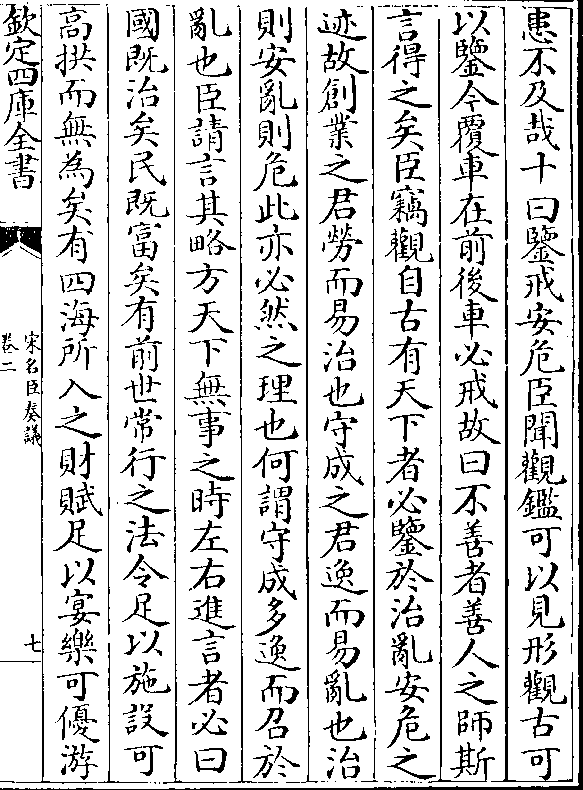 患不及哉十曰鑒戒安危臣聞觀鑑可以見形觀古可
以鑒今覆車在前後車必戒故曰不善者善人之師斯
言得之矣臣竊觀自古有天下者必鑒於治亂安危之
迹故創業之君勞而易治也守成之君逸而易亂也治
則安亂則危此亦必然之理也何謂守成多逸而召於
亂也臣請言其略方天下無事之時左右進言者必曰
國既治矣民既富矣有前世常行之法令足以施設可
高拱而無為矣有四海所入之財賦足以宴樂可優游
欽定四庫全書
宋名臣奏議
卷二
七